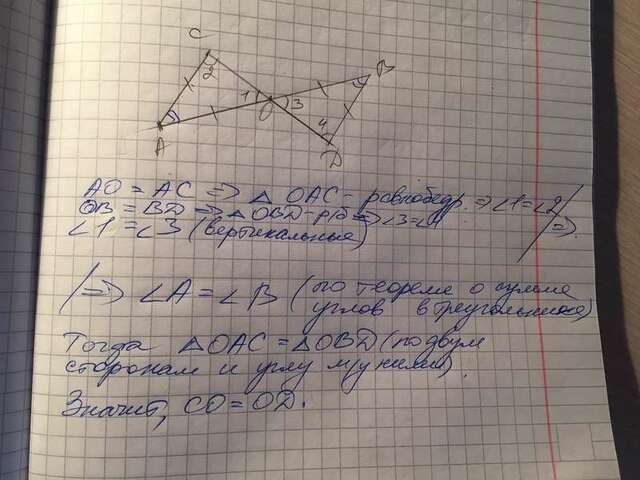 C
2
B
1
O
3
4
A
D
AO = AC => △ OAC - равнобедр. => ∠1 = ∠2
OB = BD => △ OBD - р/б => ∠3 = ∠4
∠1 = ∠3 (вертикальные) =>
=> ∠A = ∠B (по теореме о сумме
углов в треугольнике)
Тогда △OAC = △OBD (по двум
сторонам и углу м/у ними).
Значит, CO = OD.